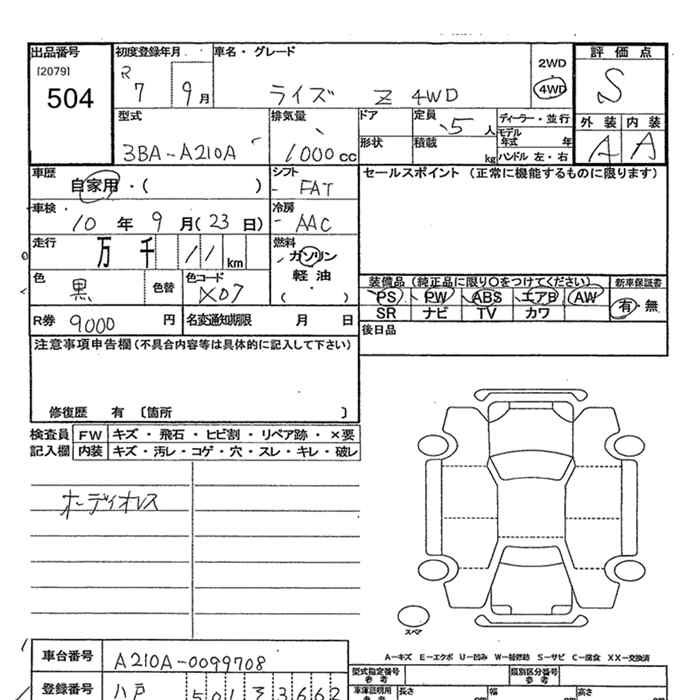 出品番号 初度登録年月 車名・グレード 2WD 評価点
[2079] R
504 7 9月 ライズ Z 4WD 4WD S
型式 排気量 ドア 定員 5人 ディーラー・並行 外装 内装
3BA-A210A 1000cc 形状 積載 kg モデル年式 年 ハンドル 左・右 A A
車歴 自家用・( ) シフト FAT セールスポイント (正常に機能するものに限ります)
車検 10年 9月(23日) 冷房 AAC
走行 万 千 11 km 燃料 ガソリン・軽油 ( )
色 黒 色替 色コード X07 装備品 (純正品に限り○をつけてください) 新車保証書
PS PW ABS エアB AW 有・無
SR ナビ TV カワ
R券 9000 円 名変通知期限 月 日 後日品
注意事項申告欄 (不具合内容等は具体的に記入して下さい)
修復歴 有 〔箇所 〕
検査員 FW キズ・飛石・ヒビ割・リペア跡・×要
記入欄 内装 キズ・汚レ・コゲ・穴・スレ・キレ・破レ
オーディオレス
スペア
A-キズ E-エクボ U-凹み W-補修跡 S-サビ C-腐食 XX-交換済
車台番号 A210A-0099708 型式指定番号 参考 類別区分番号 参考
登録番号 八戸 501 33662 車庫証明用 参考 長さ 幅 高さ